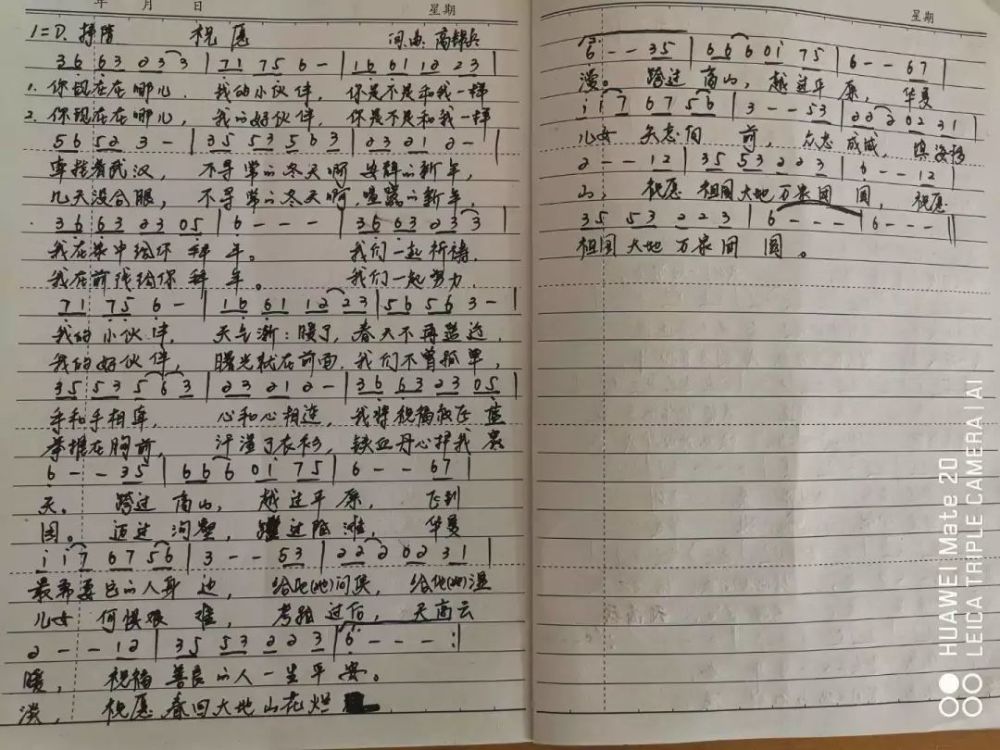 年 月 日 星期
1=D. 抒情 祝愿 词.曲: 高锦兵
36 63 023 3 | 71 75 6 - | 16 61 12 23 |
1. 你现在在哪儿, 我的小伙伴, 你是不是和我一样
2. 你现在在哪儿, 我的好伙伴, 你是不是和我一样
56 52 3 - | 35 53 56 3 | 23 21 2 - |
牵挂着武汉, 不寻常的冬天啊 安静的新年,
几天没合眼, 不寻常的冬天啊, 喧嚣的新年,
36 63 23 05 | 6 - - - | 36 63 23 3 |
我在家中给你 拜 年。 我们一起祈祷,
我在前线给你 拜 年。 我们一起努力,
71 75 6 - | 16 61 12 23 | 56 56 3 - |
我的小伙伴, 天气渐渐暖了, 春天不再遥远,
我的好伙伴, 曙光就在前面, 我们不曾孤单,
35 53 56 3 | 23 21 2 - | 36 63 23 05 |
手和手相牵, 心和心相连, 我将祝福放飞 蓝
拳握在胸前, 汗湿了衣衫, 铁血丹心护我 家
6 - - 35 | 66 6 01 75 | 6 - - 67 |
天。 跨过 高山, 越过平原, 飞到
国。 迈过 沟壑, 过险滩, 华夏
i i 7 67 56 | 3 - - 53 | 22 2 02 31 |
最需要它的人身 边, 给他(她)问候, 给他(她)温
儿女 何惧艰 难, 考验过后, 天高云
2 - - 12 | 35 53 22 3 | 6 - - - :
暖, 祝福 善良的人一生平安。
淡, 祝愿 春回大地山花烂
星期
6 - - 35 | 66 6 01 75 | 6 - - 67 |
漫。 跨过 高山, 越过平原, 华夏
i i 7 67 56 | 3 - - 53 | 22 2 02 31 |
儿女 矢志向 前, 众志成城, 填海移
2 - - 12 | 35 53 22 3 | 6 - - 12 |
山, 祝愿 祖国大地万家团 圆, 祝愿
35 53 22 3 | 6 - - - | 6 - - - ||
祖国大地 万家团 圆。
HUAWEI Mate 20
LEICA TRIPLE CAMERA | AI